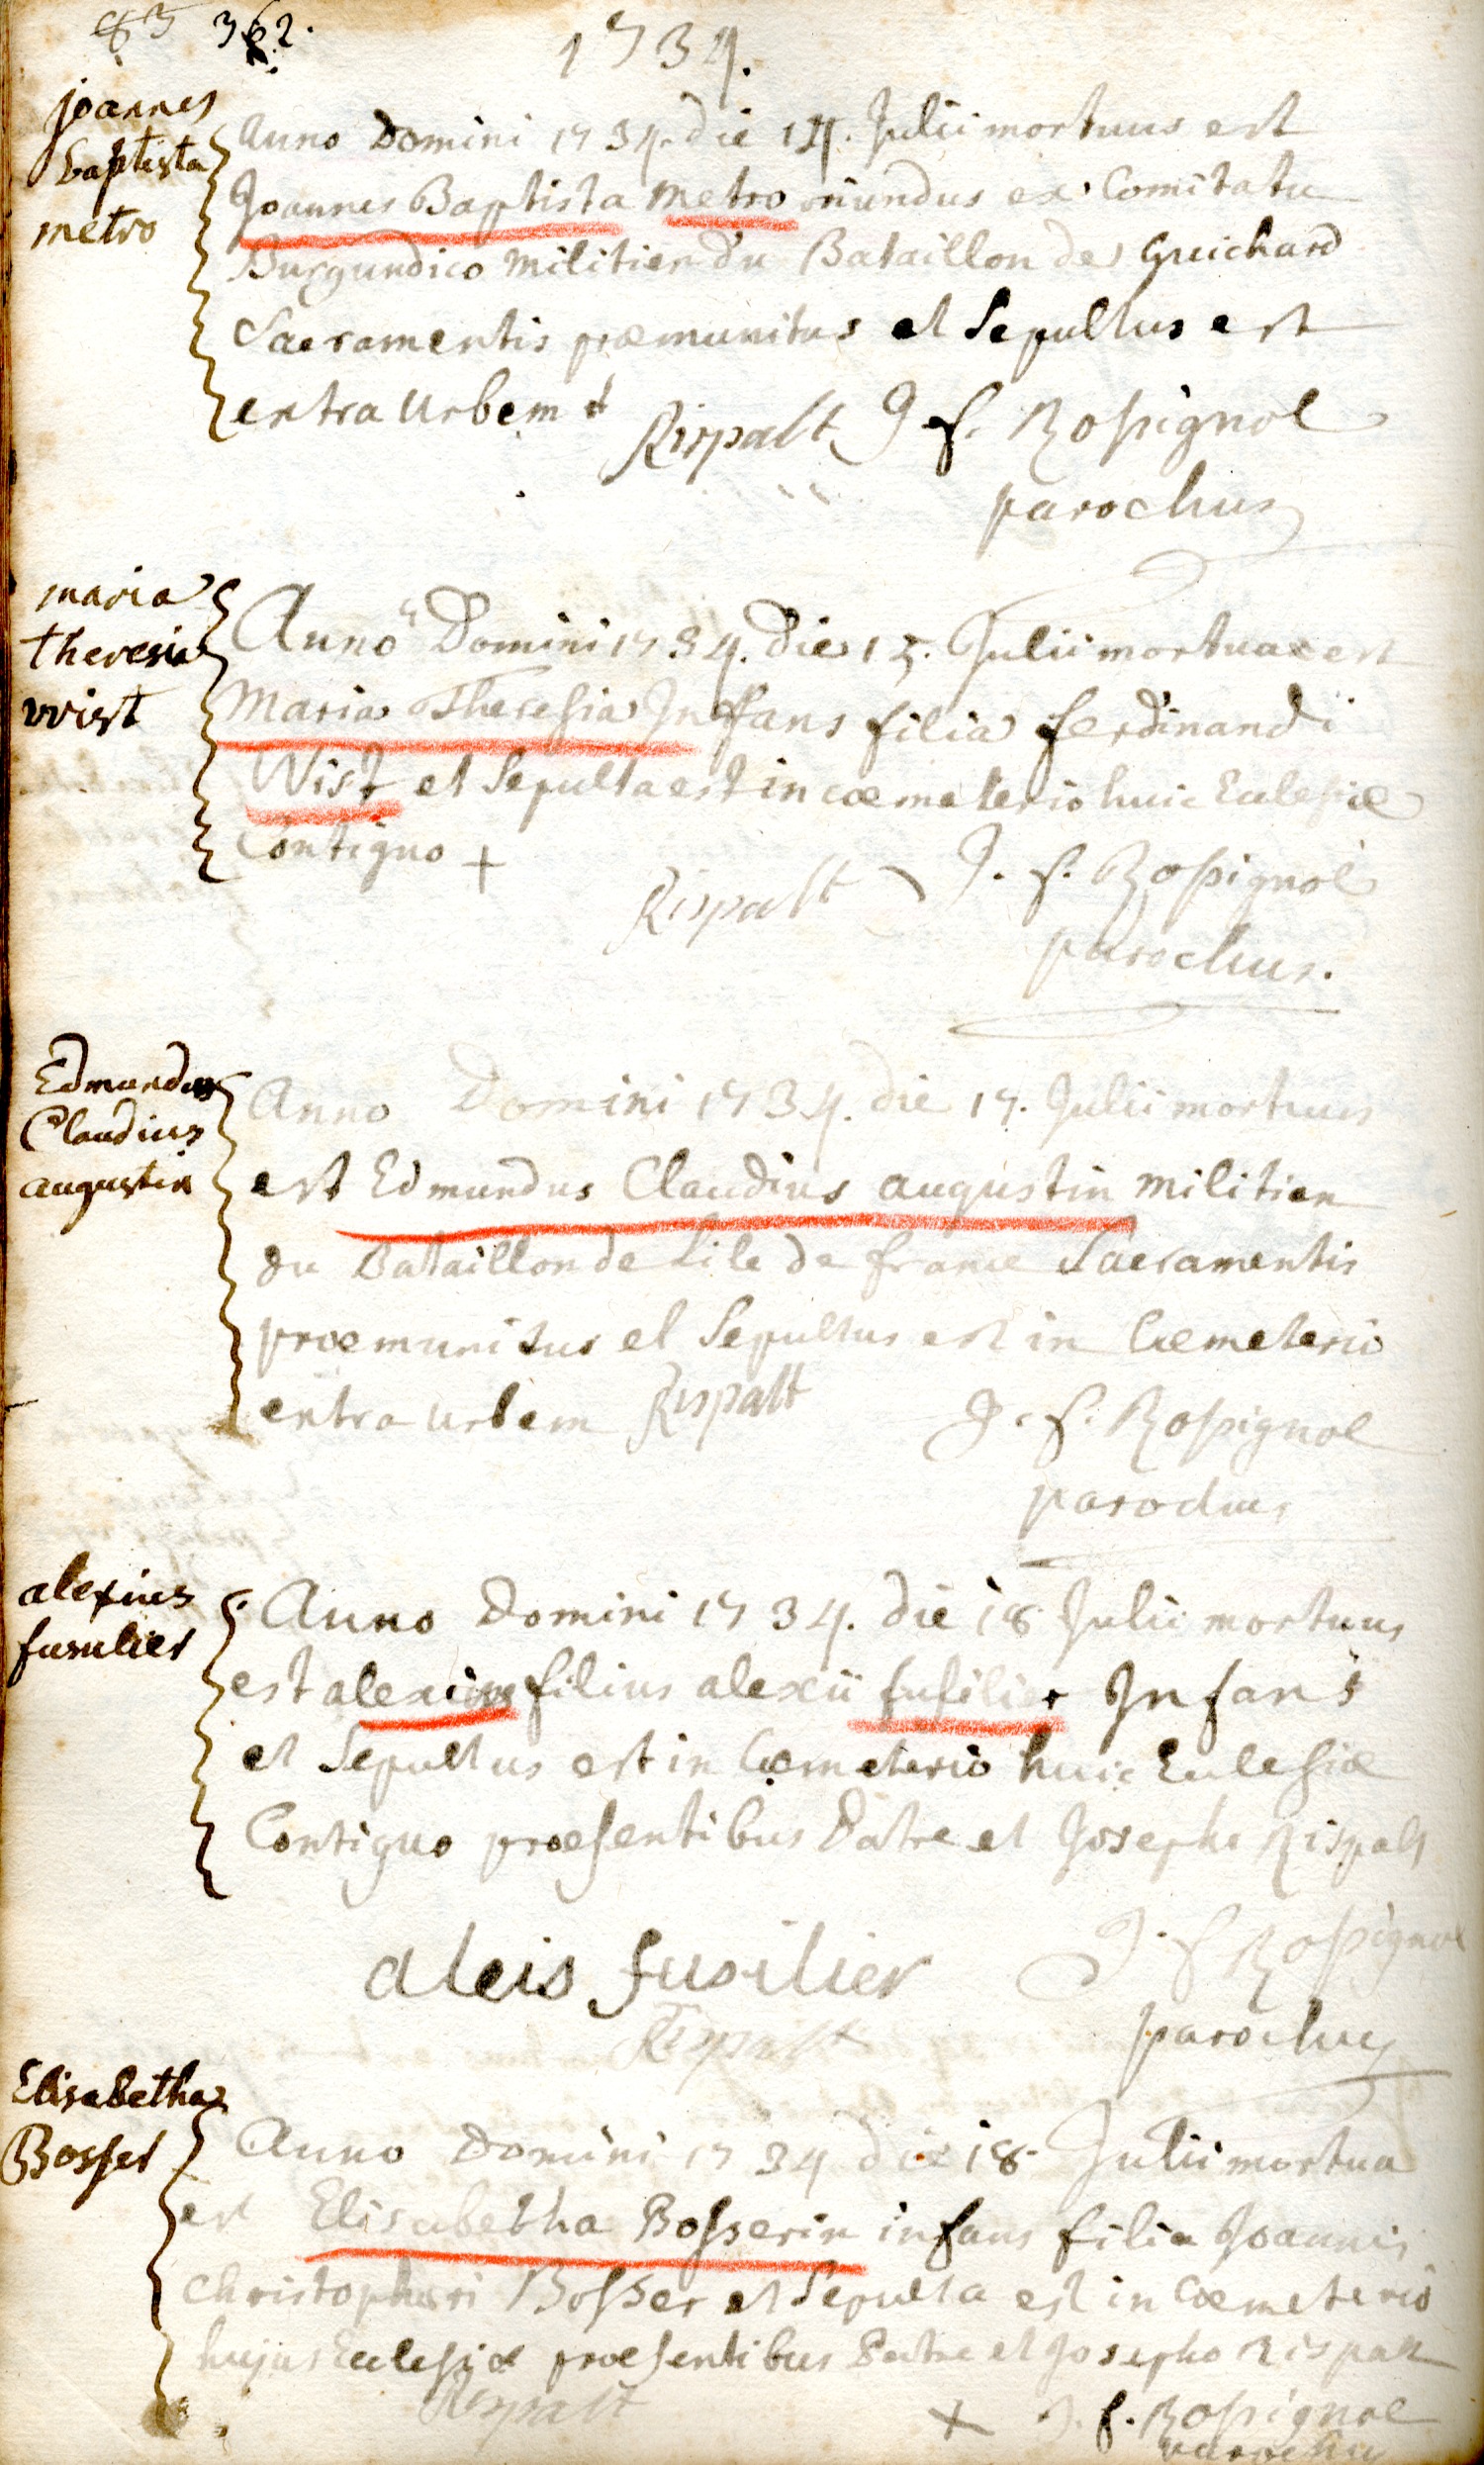 83 362.
1734.
joannes
baptista
metro
Anno Domini 1734. die 14. Julii mortuus est
Joannes Baptista Metro oriundus ex Comitatu
Burgundico Militien du Bataillon de Guichard
Sacramentis præmunitus et Sepultus est
extra Urbem
Rispalt J. f. Rossignol
parochus
maria
theresia
wist
Anno Domini 1734. die 15. Julii mortua est
Maria Theresia Infans filia ferdinandi
Wist et Sepulta est in cœmeterio huic Eclesiæ
Contiguo +
Rispalt J. f. Rossignol
parochus.
Edmundus
Claudius
augustin
Anno Domini 1734. die 17. Julii mortuus
est Edmundus Claudius augustin militien
du Bataillon de Lile de france Sacramentis
præmunitus et Sepultus est in Cœmeterio
extra urbem Rispalt J. f. Rossignol
parochus
alexius
fusulier
Anno Domini 1734. die 18 Julii mortuus
est alexius filius alexii fusilier Infans
et Sepultus est in Cœmeterio huic Eclesiæ
Contiguo præsentibus Patre et Josepho Rispalt
aleis fusilier J. f Rossignol
Rispalt parochus
Elisabetha
Bosser
Anno Domini 1734 die 18. Julii mortua
est Elisabetha Bosserin infans filia Joannis
Christophori Bosser et Sepulta est in Cœmeterio
hujus Eclesiæ præsentibus Patre et Josepho Rispalt
Rispalt + J. f. Rossignol
parochus